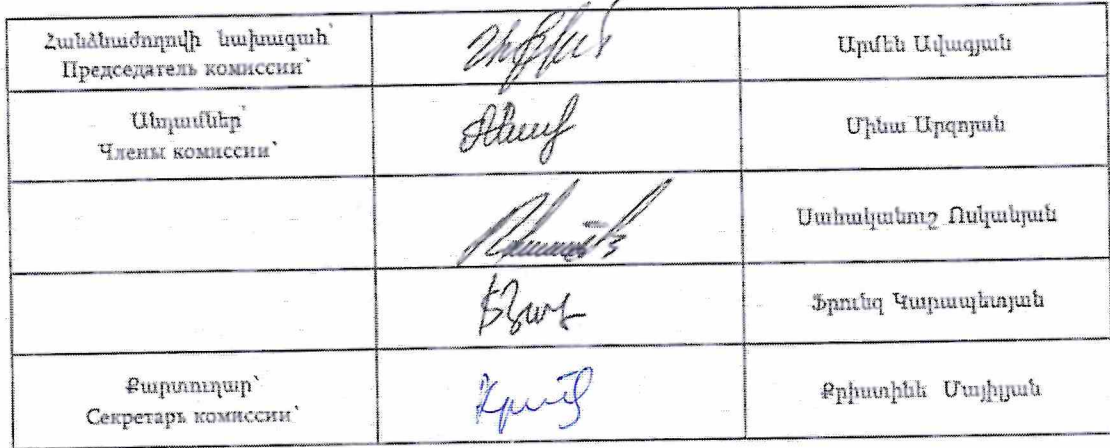 Հանձնաժողովի նախագահ՝
Председатель комиссии՝
Արմեն Ավագյան
Անդամներ՝
Члены комиссии՝
Մինա Արզոյան
Սահականուշ Ոսկանյան
Ֆրունզ Կարապետյան
Քարտուղար՝
Секретарь комиссии՝
Քրիստինե Մայիլյան